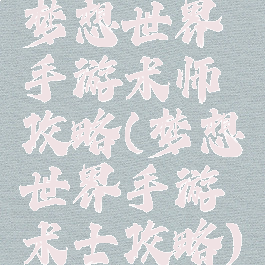 梦想世界
手游术师
攻略(梦想
世界手游
术士攻略)